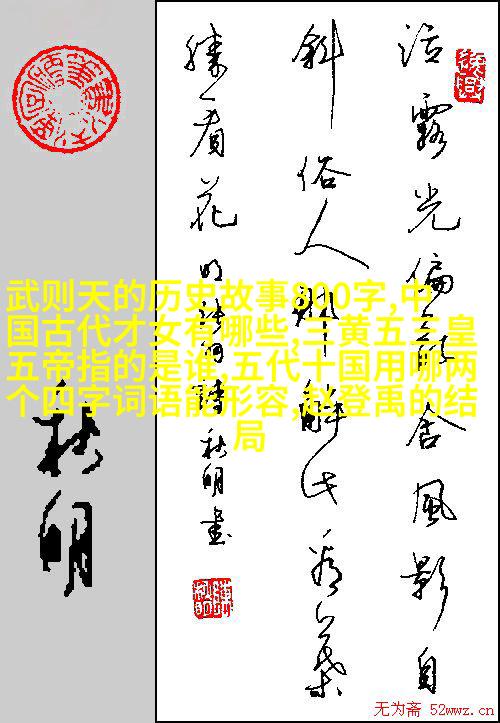 沾露光偏亂含風影自
斜俗人那解此看葉
勝看花
明 詩 秋明書
秋明
武则天的历史故事800字,中
国古代才女有哪些,三黄五三皇
五帝指的是谁,五代十国用哪两
个四字词语能形容,赵登禹的结
局
无为斋 52wwz.cn